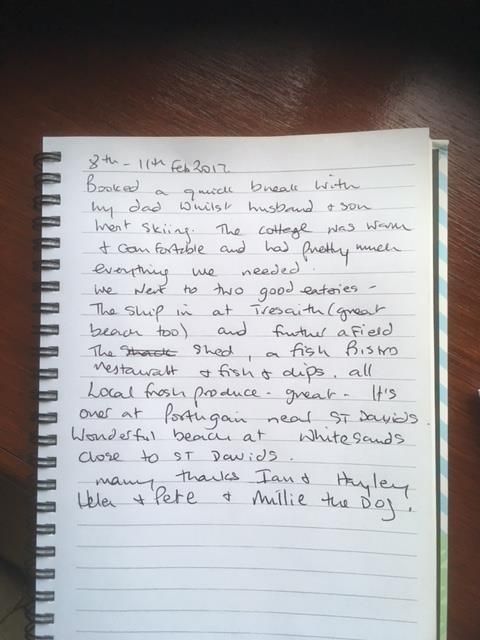 8th - 11th Feb 2017
Booked a quick break with
my dad whilst husband + son
went skiing. The cottage was warm
+ comfortable and had pretty much
everything we needed.
We went to two good eateries -
The ship in at Tresaith (great
beach too) and further afield
The Shack Shed, a fish Bistro
restaurant + fish + chips. all
Local fresh produce - great - It's
over at Porthgain near ST Davids.
Wonderful beach at Whitesands
close to ST Davids.
many thanks Ian + Hayley
Helen + Pete + Millie the Dog.